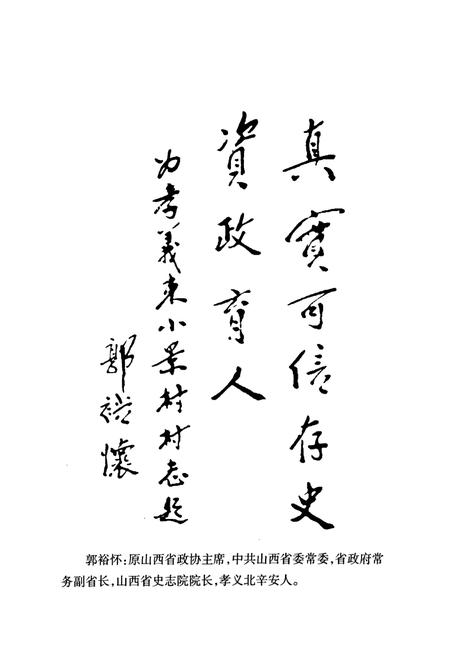 真實可信存史
資政育人
为孝義東小景村村志題
郭裕懷
郭裕怀:原山西省政协主席,中共山西省委常委,省政府常
务副省长,山西省史志院院长,孝义北辛安人。